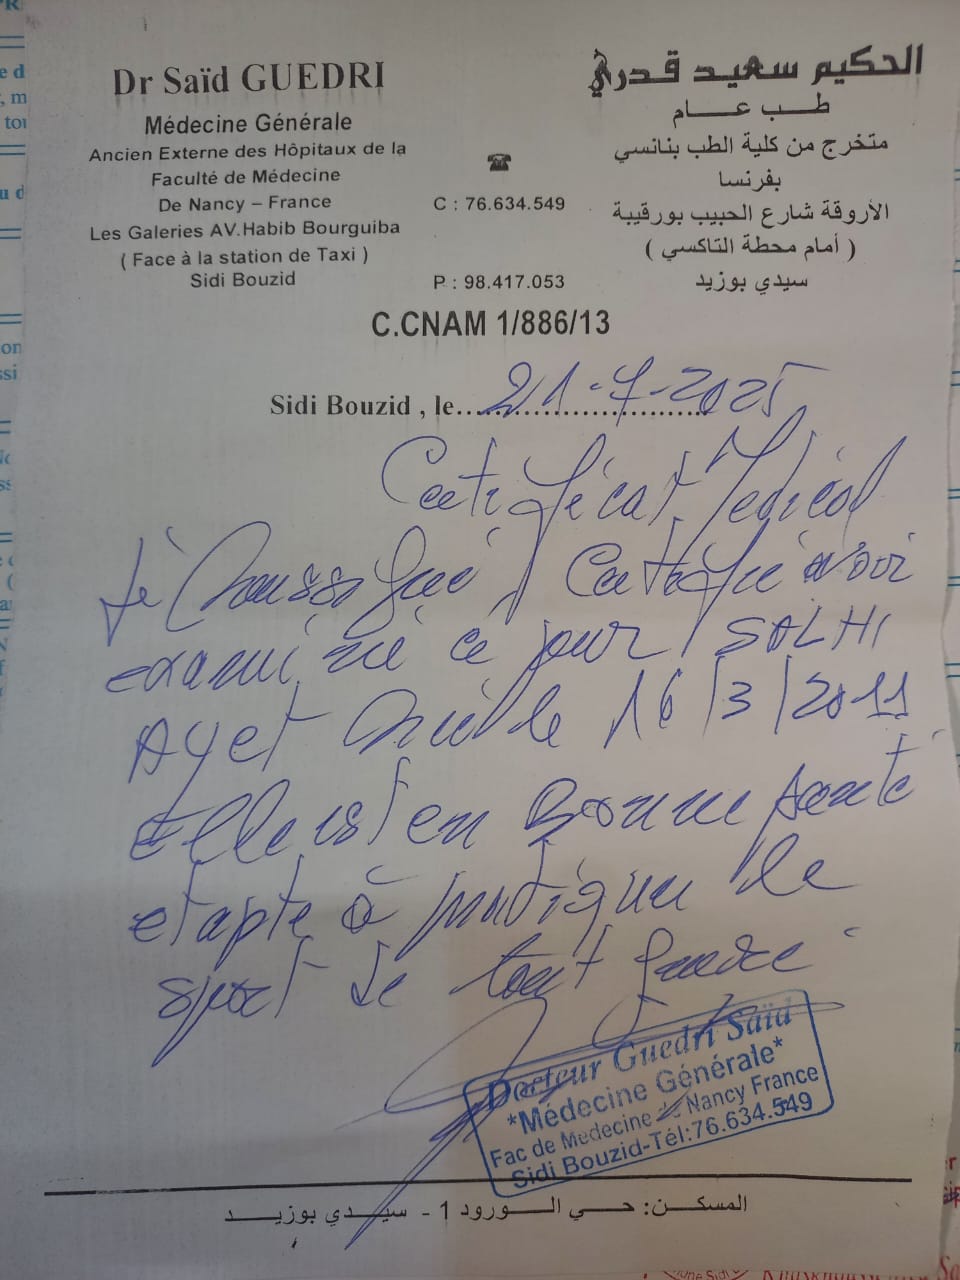 Dr Saïd GUEDRI
Médecine Générale
Ancien Externe des Hôpitaux de la
Faculté de Médecine
De Nancy – France
Les Galeries AV.Habib Bourguiba
( Face à la station de Taxi )
Sidi Bouzid
C : 76.634.549
P : 98.417.053
الحكيم سعيد قدري
طب عام
متخرج من كلية الطب بنانسي
بفرنسا
الأروقة شارع الحبيب بورقيبة
( أمام محطة التاكسي )
سيدي بوزيد
C.CNAM 1/886/13
Sidi Bouzid , le 21-7-2025
Certificat Medical
Je Soussigné Certifie avoir
examiné ce jour SALHI
Ayet née le 16/3/2011
Elle est en Bonne santé
et apte à pratiquer le
sport de tout
Docteur Guedri Saïd
*Médecine Générale*
Fac de Medecine Nancy France
Sidi Bouzid-Tél:76.634.549
المسكن: حي الورود 1 - سيدي بوزيد